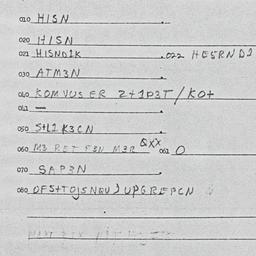 010 HISN
020 HISN
021 HISNDIK .022 HESRNDJ
030 ATM3N
040 KOMVUS ER Z+1D3T/K0+
041 —
050 S+L1 K3CN
060 M3 RET F3N M3R &XX 061 O
070 SAP3N
080 OFS+TOJSNBVJUPGREPCN